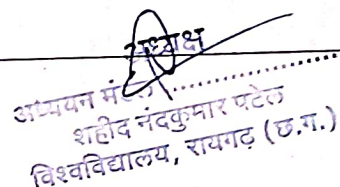 अध्यक्ष
अध्ययन मंडल..................
शहीद नंदकुमार पटेल
विश्वविद्यालय, रायगढ़ (छ.ग.)